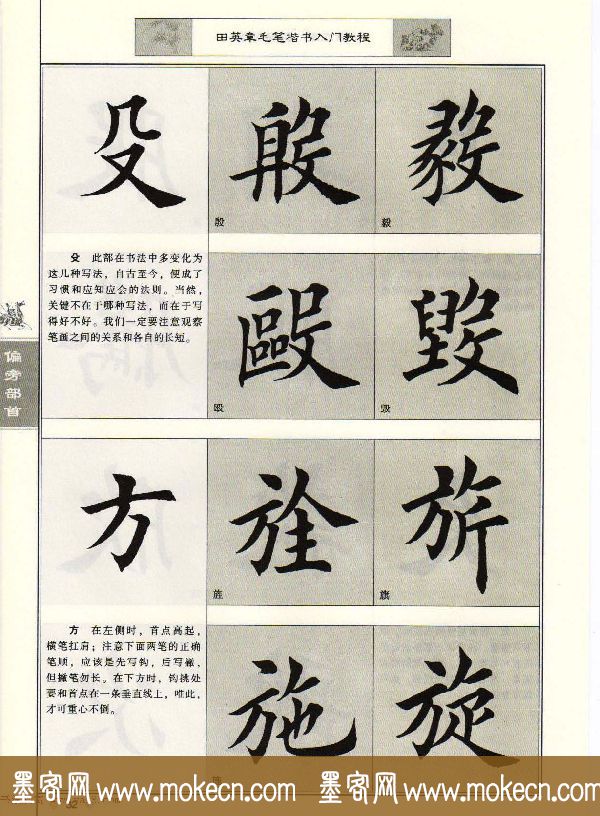 田英章毛笔楷书入门教程
殳 殷 毅
殷 毅
殳 此部在书法中多变化为
这几种写法，自古至今，便成了
习惯和应知应会的法则。当然，
关键不在于哪种写法，而在于写
得好不好。我们一定要注意观察
笔画之间的关系和各自的长短。
毆 毁
殴 毁
偏旁部首
方 旌 旂
旌 旗
方 在左侧时，首点高起，
横笔扛肩；注意下面两笔的正确
笔顺，应该是先写钩，后写撇，
但撇笔勿长。在下方时，钩挑处
要和首点在一条垂直线上，唯此，
才可重心不倒。
施 旋
墨客网 www.mokecn.com 墨客网 www.mokecn.com